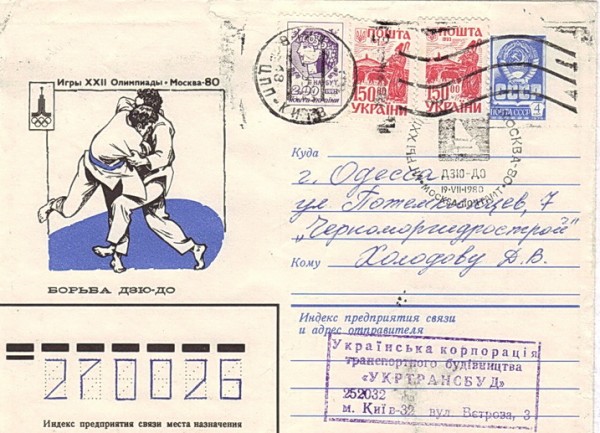 Игры XXII Олимпиады • Москва-80
БОРЬБА ДЗЮ-ДО
ПОШТА
150.00
УКРАЇНИ
ПОШТА
150.00
УКРАЇНИ
4
ИГРЫ XXII
МОСКВА-80
ДЗЮ-ДО
19-VII-1980
МОСКВА-ПОЧТАМТ
Куда
г. Одесса
ул. Потемкинцев, 7
"Черноморгидрострой"
Кому
Холодову Д.В.
Индекс предприятия связи
и адрес отправителя
Українська корпорація
транспортного будівництва
«УКРТРАНСБУД»
252032
м. Київ-32 вул Вєтрова, 3
270026
Индекс предприятия связи места назначения